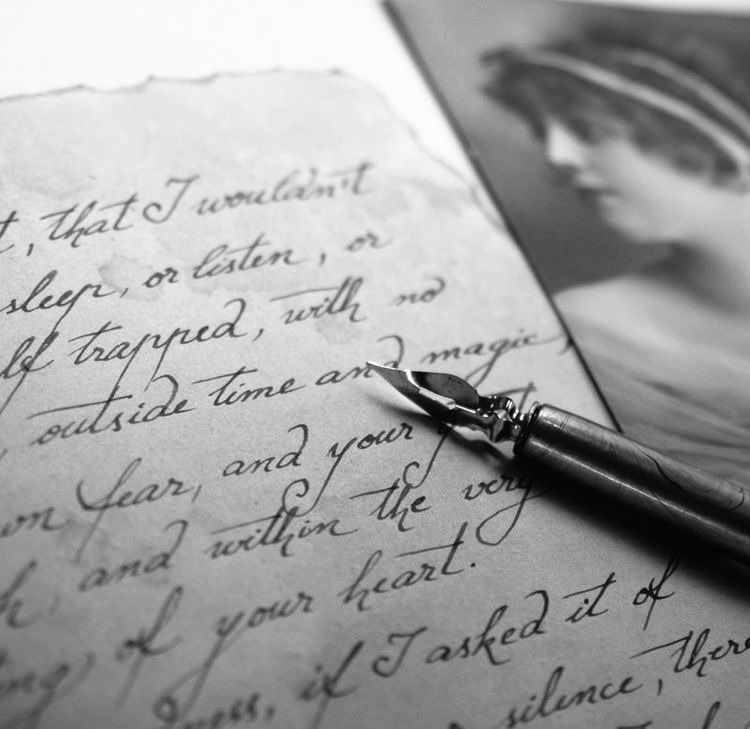 , that I wouldn't
sleep, or listen, or
trapped, with no
outside time and magic,
fear, and your
and within the very
of your heart.
if I asked it of
silence, there